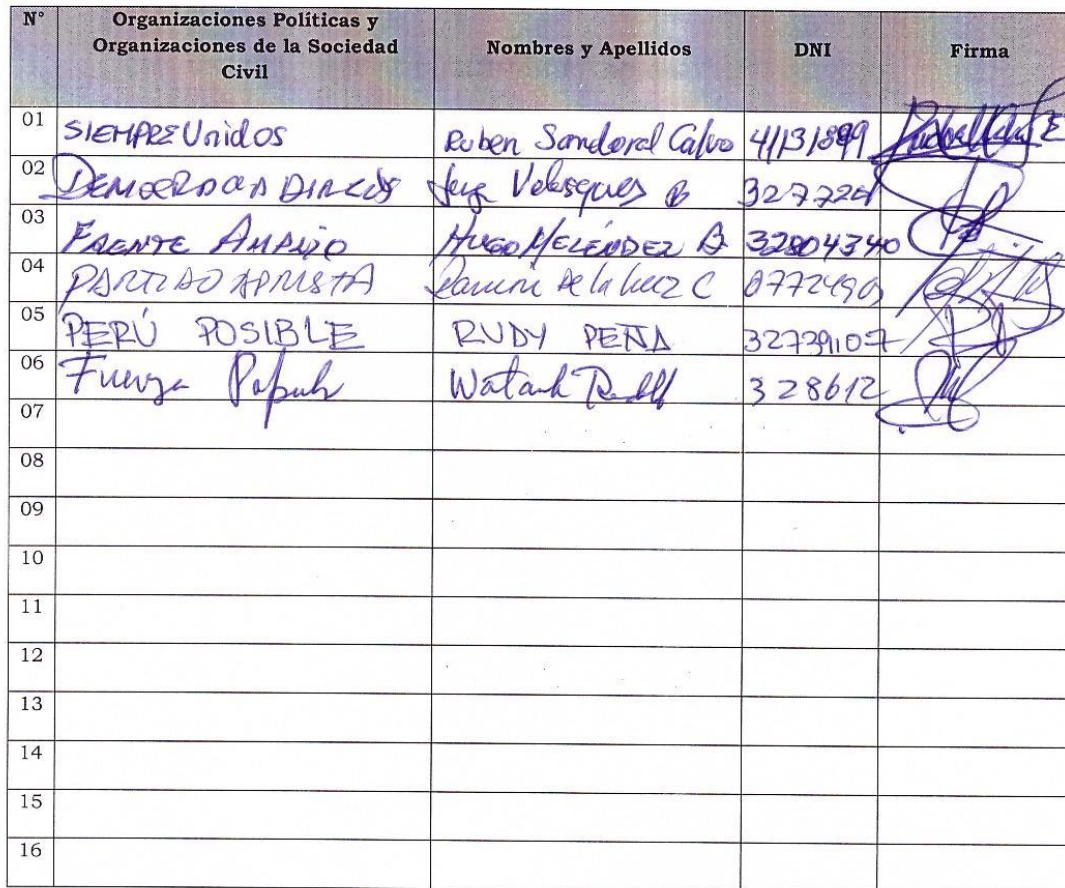 N° Organizaciones Políticas y Organizaciones de la Sociedad Civil Nombres y Apellidos DNI Firma
01 SIEMPRE Unidos Ruben Sandoval Calvo 41131899
02 DEMOCRACIA DIRECTA Jorge Velasques B 327724
03 FRENTE AMPLIO HUGO MELENDEZ B 32804340
04 PARTIDO APRISTA Ramiro de la Cruz C 0772490
05 PERÚ POSIBLE RUDY PEÑA 32739107
06 Fuerza Popular 328612
07
08
09
10
11
12
13
14
15
16